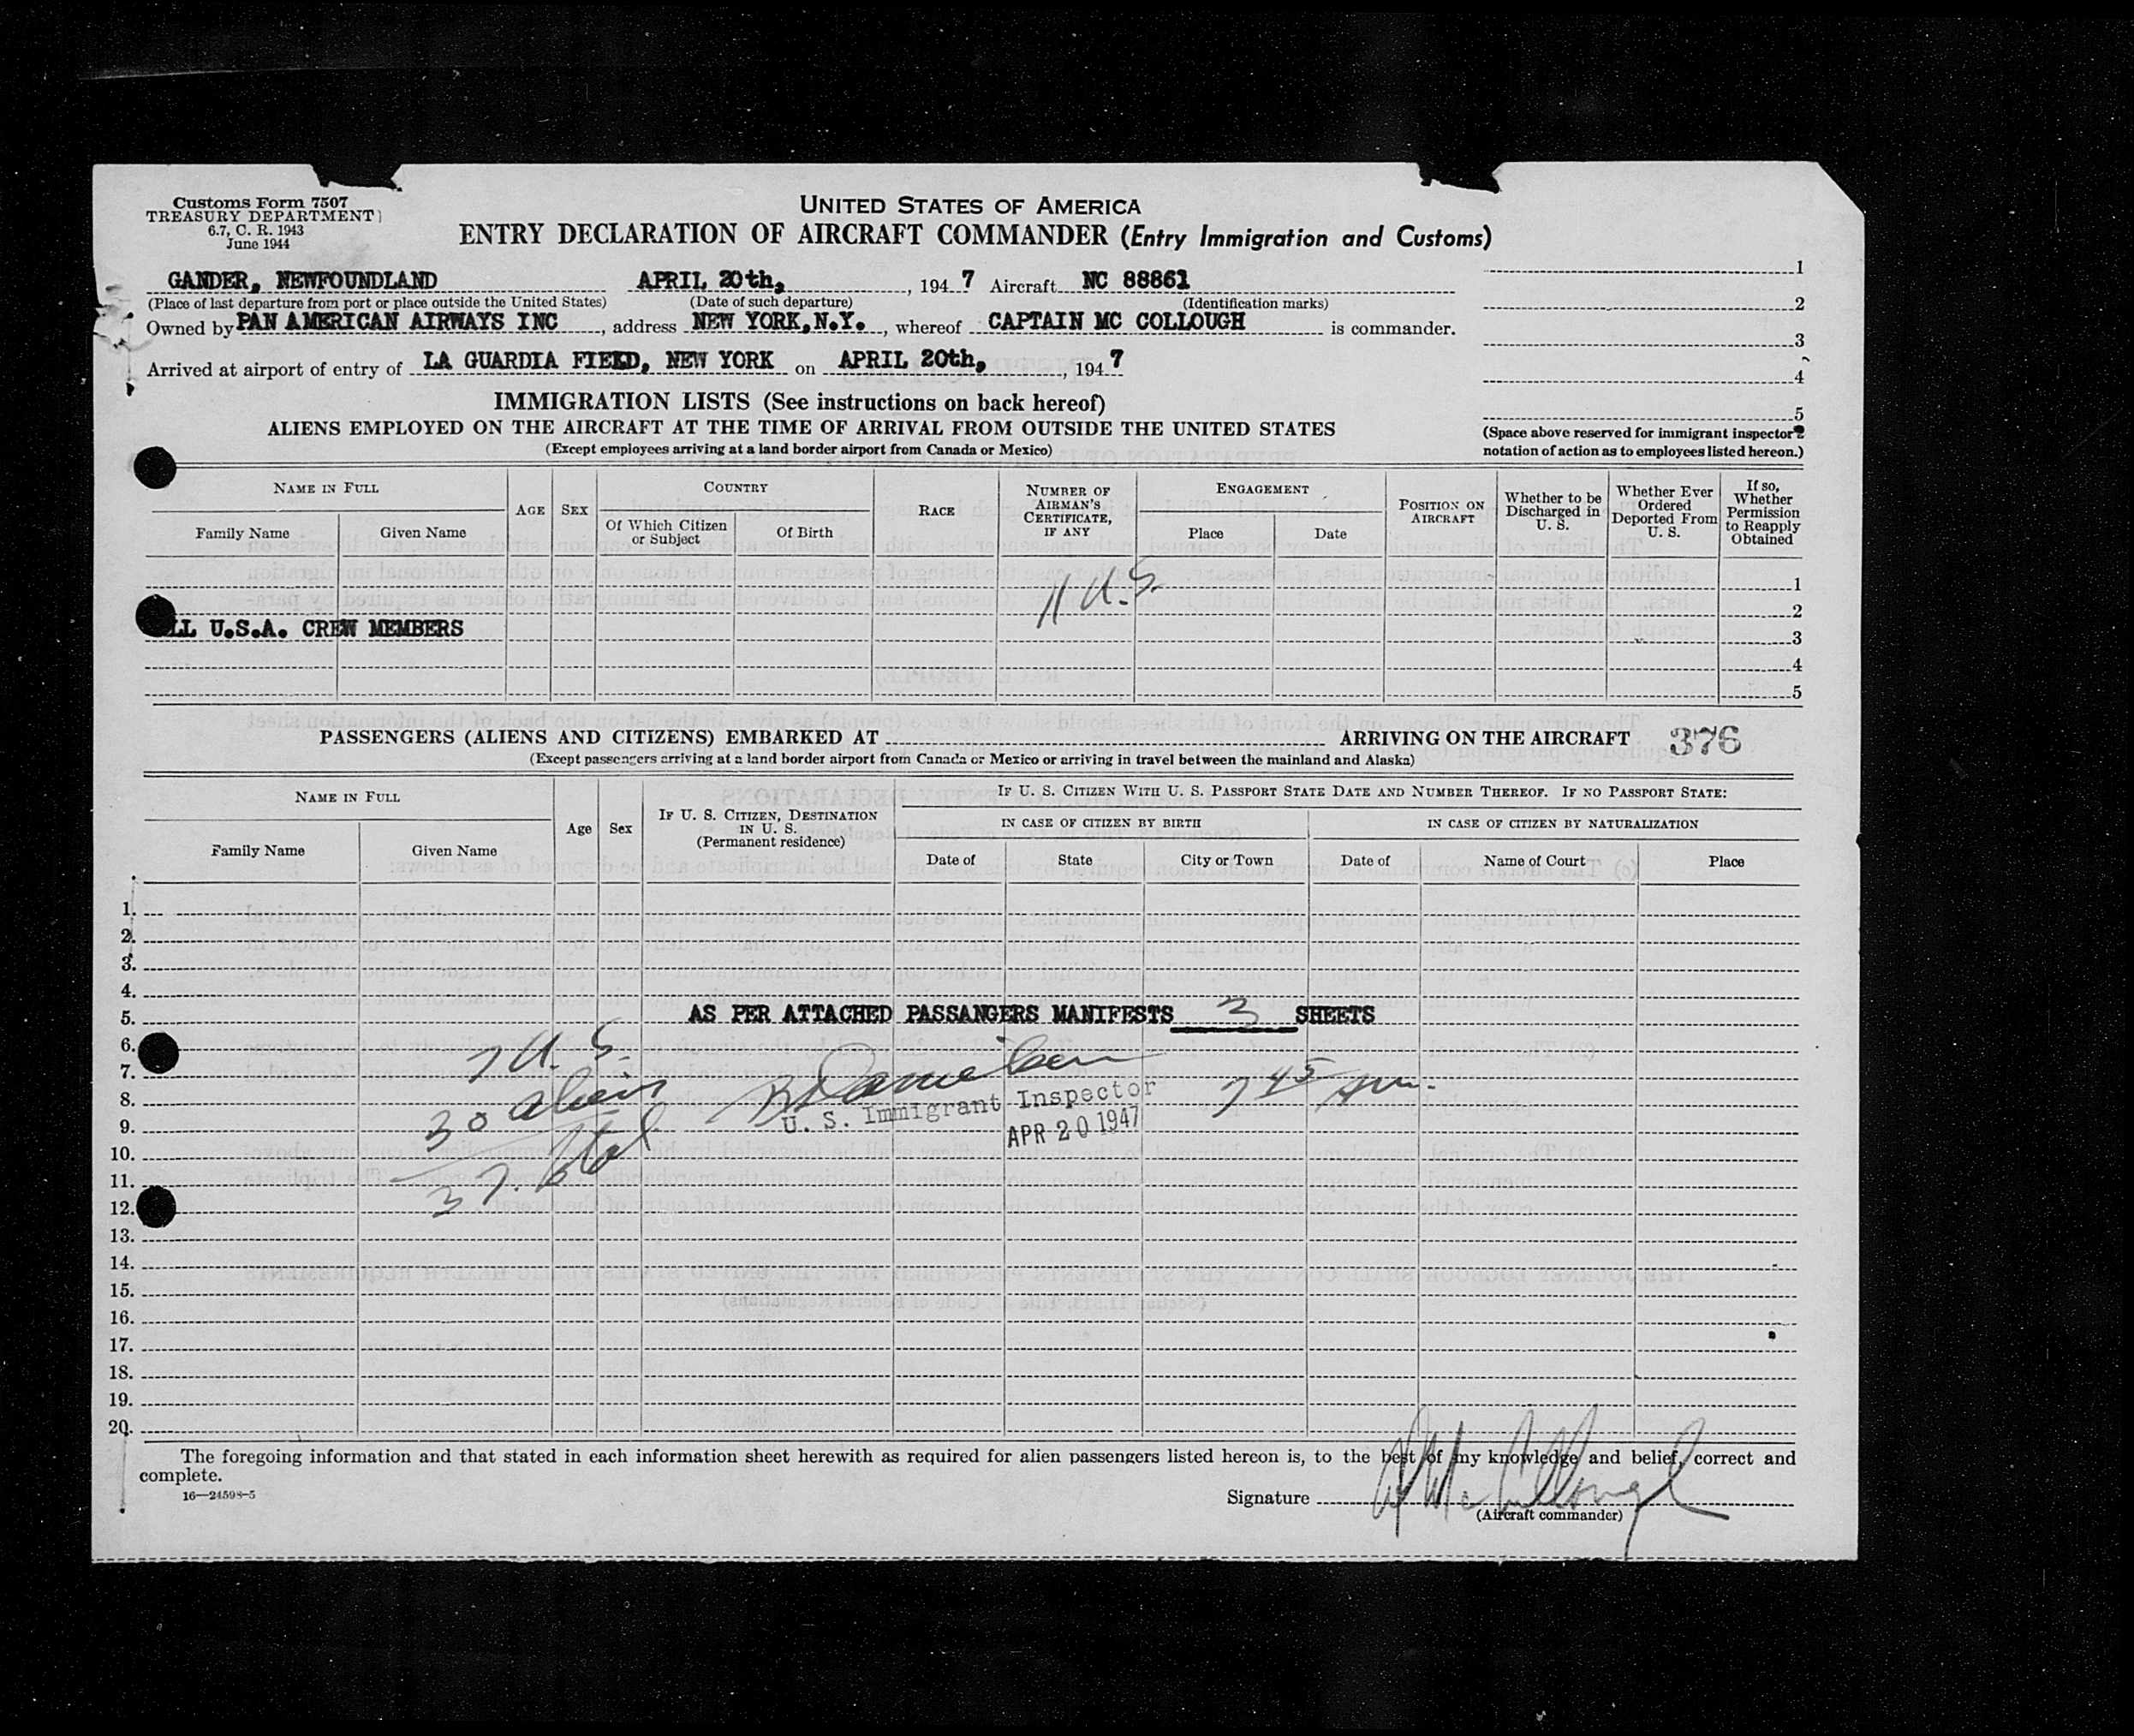 Customs Form 7507
TREASURY DEPARTMENT
6.7, C. R. 1943
June 1944
UNITED STATES OF AMERICA
ENTRY DECLARATION OF AIRCRAFT COMMANDER (Entry Immigration and Customs)
GANDER, NEWFOUNDLAND APRIL 20th, , 194 7 Aircraft NC 88861
(Place of last departure from port or place outside the United States) (Date of such departure) (Identification marks)
Owned by PAN AMERICAN AIRWAYS INC , address NEW YORK,N.Y. , whereof CAPTAIN MC COLLOUGH is commander.
Arrived at airport of entry of LA GUARDIA FIELD, NEW YORK on APRIL 20th, , 194 7
1
2
3
4
5
(Space above reserved for immigrant inspector's
notation of action as to employees listed hereon.)
IMMIGRATION LISTS (See instructions on back hereof)
ALIENS EMPLOYED ON THE AIRCRAFT AT THE TIME OF ARRIVAL FROM OUTSIDE THE UNITED STATES
(Except employees arriving at a land border airport from Canada or Mexico)
NAME IN FULL
Family Name Given Name
AGE SEX
COUNTRY
Of Which Citizen or Subject Of Birth
RACE
NUMBER OF AIRMAN'S CERTIFICATE, IF ANY
ENGAGEMENT
Place Date
POSITION ON AIRCRAFT
Whether to be Discharged in U. S.
Whether Ever Ordered Deported From U. S.
If so, Whether Permission to Reapply Obtained
11 U.S.
1
2
LL U.S.A. CREW MEMBERS 3
4
5
PASSENGERS (ALIENS AND CITIZENS) EMBARKED AT ARRIVING ON THE AIRCRAFT 376
(Except passengers arriving at a land border airport from Canada or Mexico or arriving in travel between the mainland and Alaska)
NAME IN FULL
Family Name Given Name
Age Sex
IF U. S. CITIZEN, DESTINATION IN U. S.
(Permanent residence)
IF U. S. CITIZEN WITH U. S. PASSPORT STATE DATE AND NUMBER THEREOF. IF NO PASSPORT STATE:
IN CASE OF CITIZEN BY BIRTH IN CASE OF CITIZEN BY NATURALIZATION
Date of State City or Town Date of Name of Court Place
1.
2.
3.
4.
5. AS PER ATTACHED PASSANGERS MANIFESTS 3 SHEETS
6. 7 U.S.
7.
8. 30 aliens 7 45 am.
U. S. Immigrant Inspector
9. APR 20 1947
10.
11. 37. total
12.
13.
14.
15.
16.
17.
18.
19.
20.
The foregoing information and that stated in each information sheet herewith as required for alien passengers listed hereon is, to the best of my knowledge and belief, correct and
complete.
16—24598-5
Signature McCullough
(Aircraft commander)